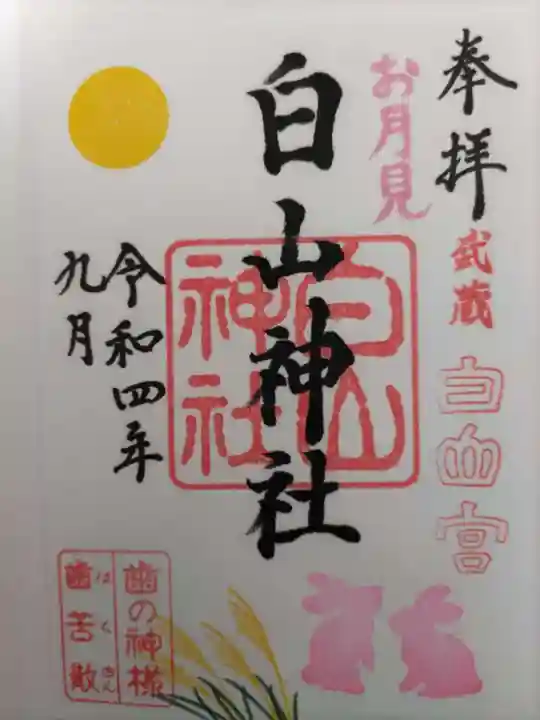 奉拝
武蔵
白山宮
お月見
白山神社
白山
神社
令和四年
九月
歯の神様
歯苦散
はくさん